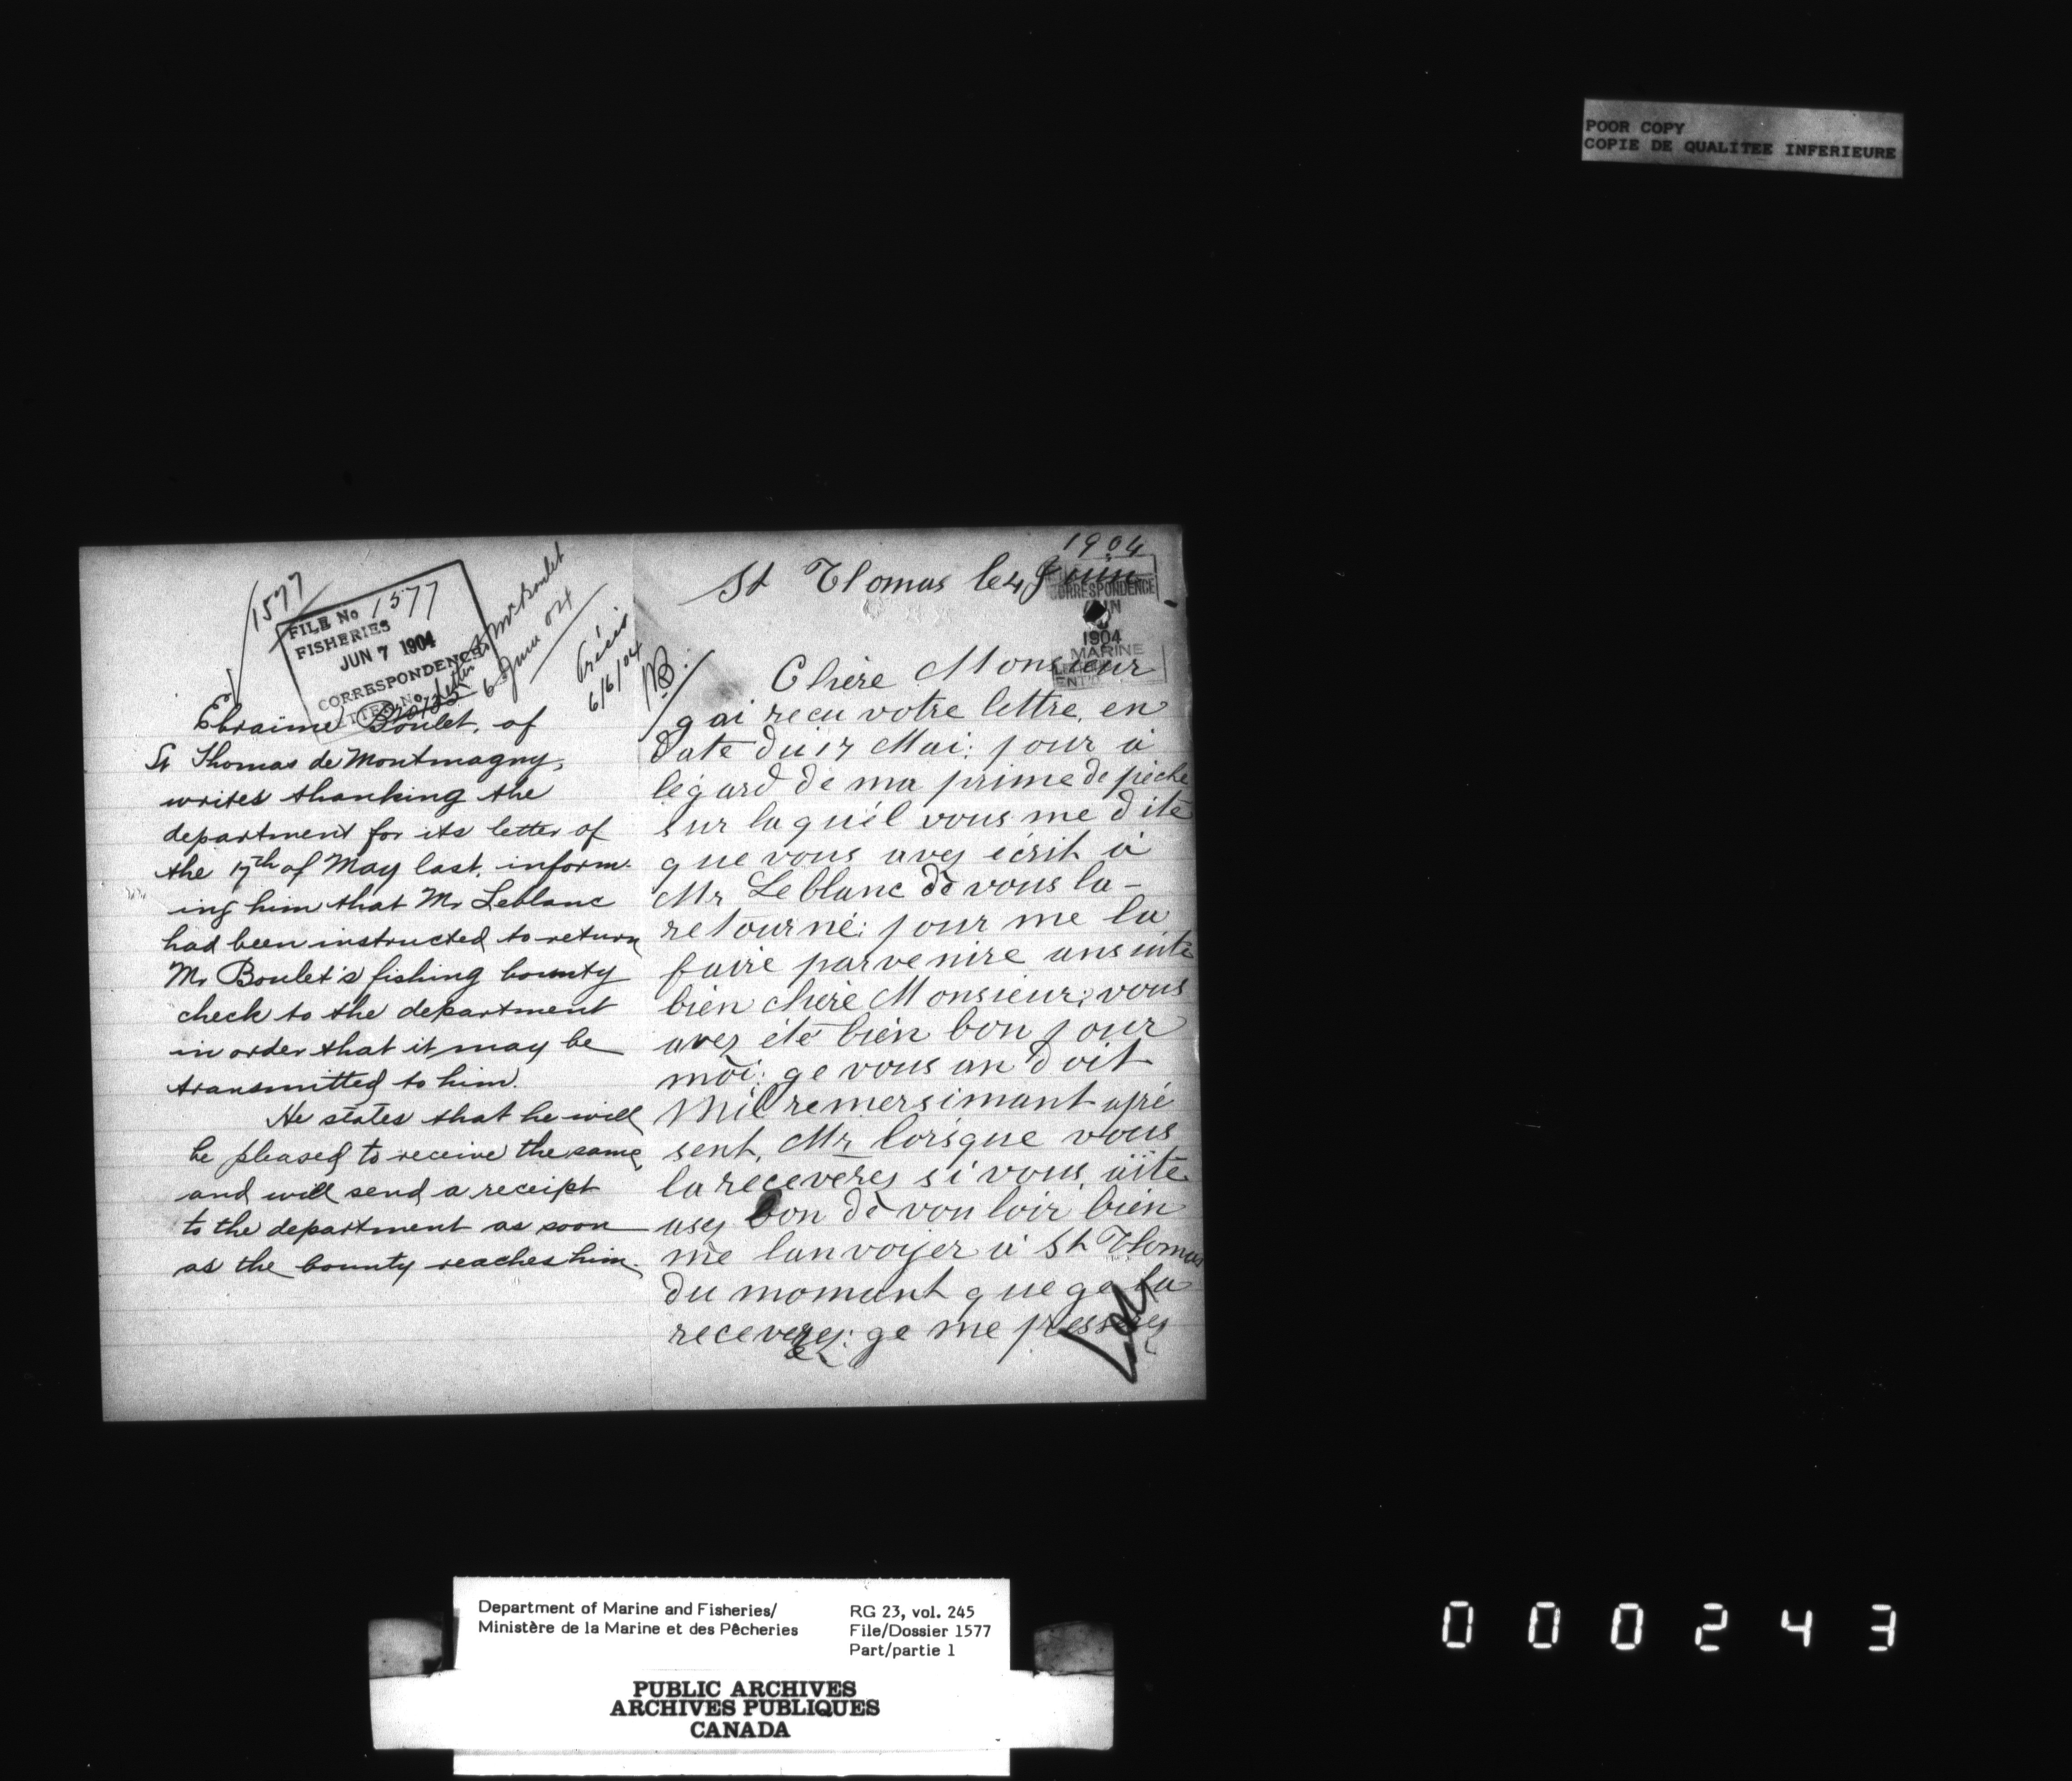 POOR COPY
COPIE DE QUALITEE INFERIEURE
1577
FILE No 1577
FISHERIES
JUN 7 1904
CORRESPONDENCE
Letter to Mr Boulet
6 June 04
Précis
6/6/04
Ebraime Boulet, of
St Thomas de Montmagny,
writes thanking the
department for its letter of
the 17th of May last, inform-
ing him that Mr Leblanc
had been instructed to return
Mr Boulet's fishing bounty
check to the department
in order that it may be
transmitted to him.
He states that he will
be pleased to receive the same,
and will send a receipt
to the department as soon
as the bounty reaches him.
1904
St Thomas le 4 Juin
CORRESPONDENCE
JUN
1904
MARINE
Chère Monsieur
gai recu votre lettre, en
date du 17 Mai: pour a
légard de ma prime de pèche
sur laquél vous me dite
que vous avez écrit à
Mr Leblanc dè vous la-
retourné: pour me la
faire parvenire ansuite
bien chère Monsieur; vous
avez été bien bon pour
moi: ge vous an doit
Mil remersimant apré
sent, Mr lorsque vous
la recevères si vous, aite
asez bon dè vouloir bien
me lanvoyer à St Thomas
du momant que ge la
receverez: ge me presserez
Department of Marine and Fisheries/
Ministère de la Marine et des Pêcheries
RG 23, vol. 245
File/Dossier 1577
Part/partie 1
PUBLIC ARCHIVES
ARCHIVES PUBLIQUES
CANADA
000243